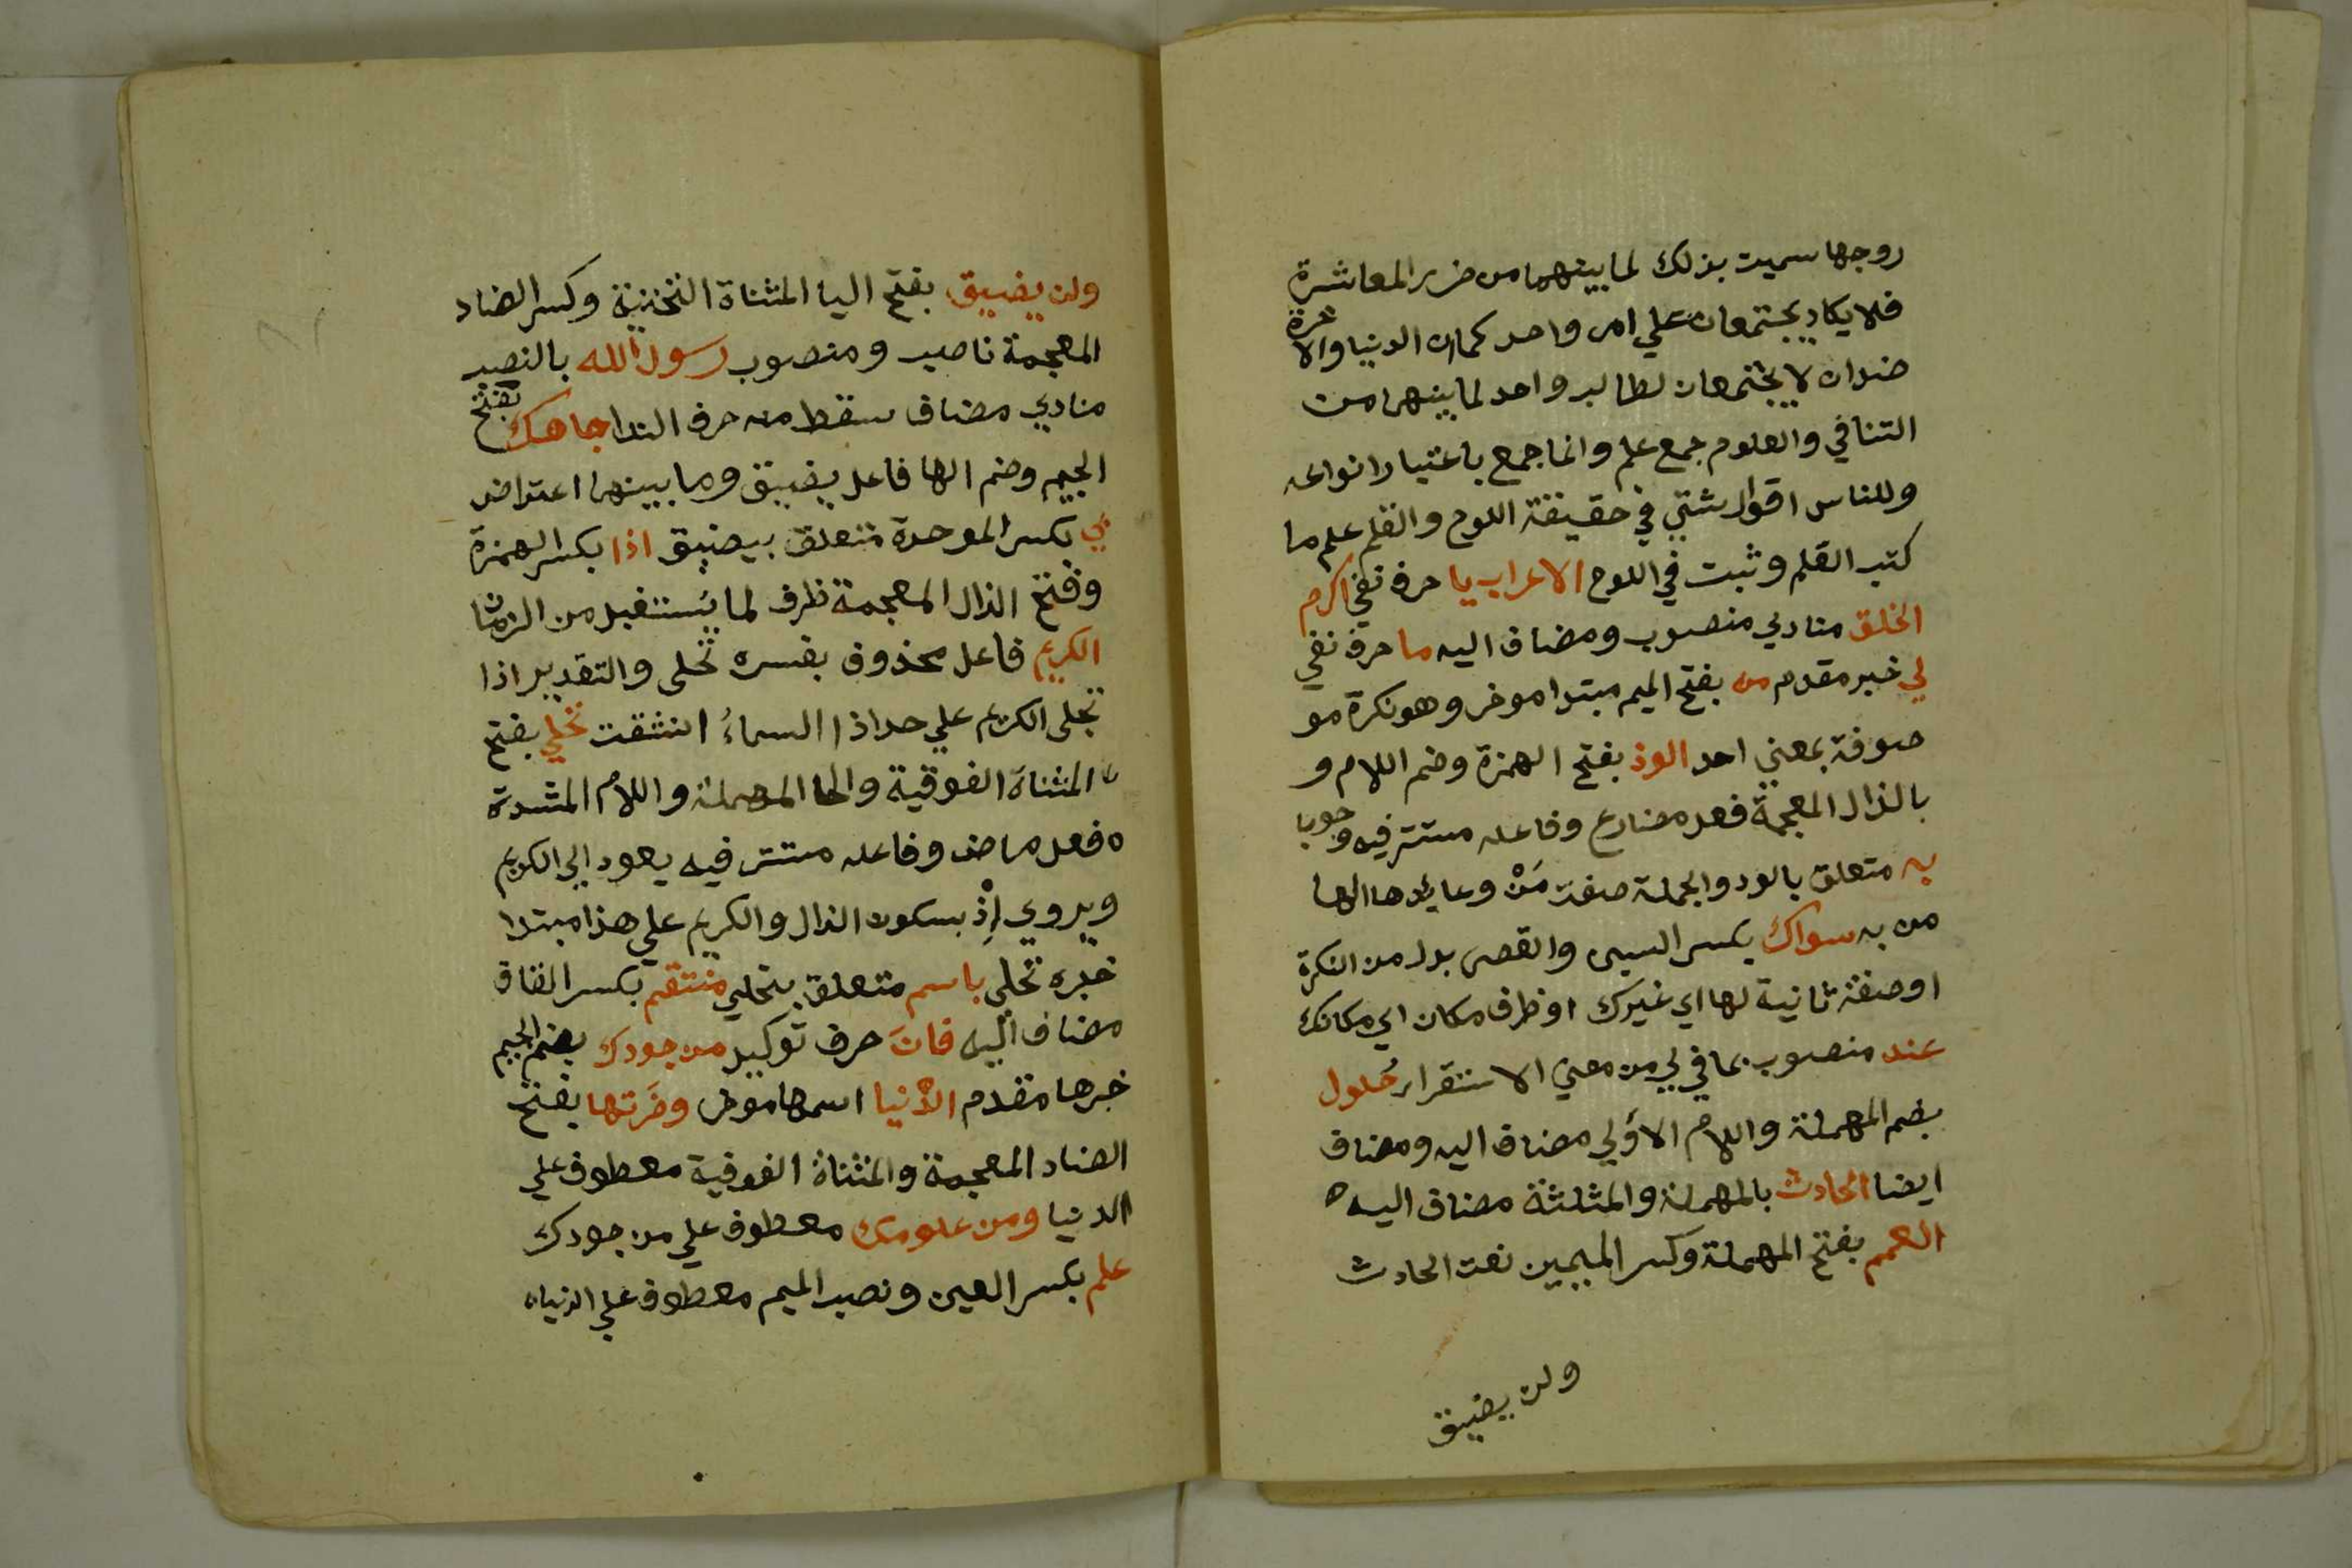 روجها سميت بذلك لما بينهما من ضرر المعاشرة
فلا يكاد يجتمعان علي امر واحد كما ان الدنيا والاخرة
ضدان لا يجتمعان لطالب واحد لما بينهما من
التنافي والعلوم جمع علم وانما جمع باعتبار انواعه
وللناس اقوال شتي في حقيقة اللوح والقلم علم ما
كتب القلم وثبت في اللوح الاعراب يا حرف نفي اكرم
الخلق منادي منصوب ومضاف اليه ما حرف نفي
لي خبر مقدم من بفتح الميم مبتدا موخر وهو نكرة مو
صوفة بمعني احد الوذ بفتح الهمزة وضم اللام و
بالذال المعجمة فعل مضارع وفاعله مستتر فيه وجوبا
به متعلق بالوذ والجملة صفة مَنْ وعايدها الها
من به سواك بكسر السين والقصر بدل من النكرة
اوصفة ثانية لها اي غيرك او ظرف مكان اي مكانك
عند منصوب بما في لي من معني الاستقرار حُلول
بضم المهملة واللام الاولي مضاف اليه ومضاف
ايضا الحادث بالمهملة والمثلثة مضاف اليه ه
العمم بفتح المهملة وكسر الميمين نعت الحادث
ولن يضيق
ولن يضيق بفتح اليا المثناة التحتية وكسر الضاد
المعجمة ناصب ومنصوب رسول الله بالنصب
منادي مضاف سقط منه حرف الندا جاهك بفتح
الجيم وضم الها فاعل يضيق وما بينهما اعتراض
بي بكسر الموحدة متعلق بيضيق اذا بكسر الهمزة
وفتح الذال المعجمة ظرف لما يُستقبل من الزمان
الكريم فاعل محذوف يفسره تحلى والتقدير اذا
تجلى الكريم علي حد اذا السماءُ انشقت تحلي بفتح
المثناة الفوقية والحا المهملة واللام المشددة
ه فعل ماض وفاعله مستتر فيه يعود الي الكريم
ويروي إذْ بسكون الذال والكريم علي هذا مبتدا
خبره تحلى باسم متعلق بتحلي منتقم بكسر القاف
مضاف اليه فانَ حرف توكيد من جودك بضم الجيم
خبرها مقدم الدنيا اسمها موخر وضَرتها بفتح
الضاد المعجمة والمثناة الفوقية معطوف علي
الدنيا ومن علومك معطوف علي من جودك
علم بكسر العين ونصب الميم معطوف علي الدنيا ه